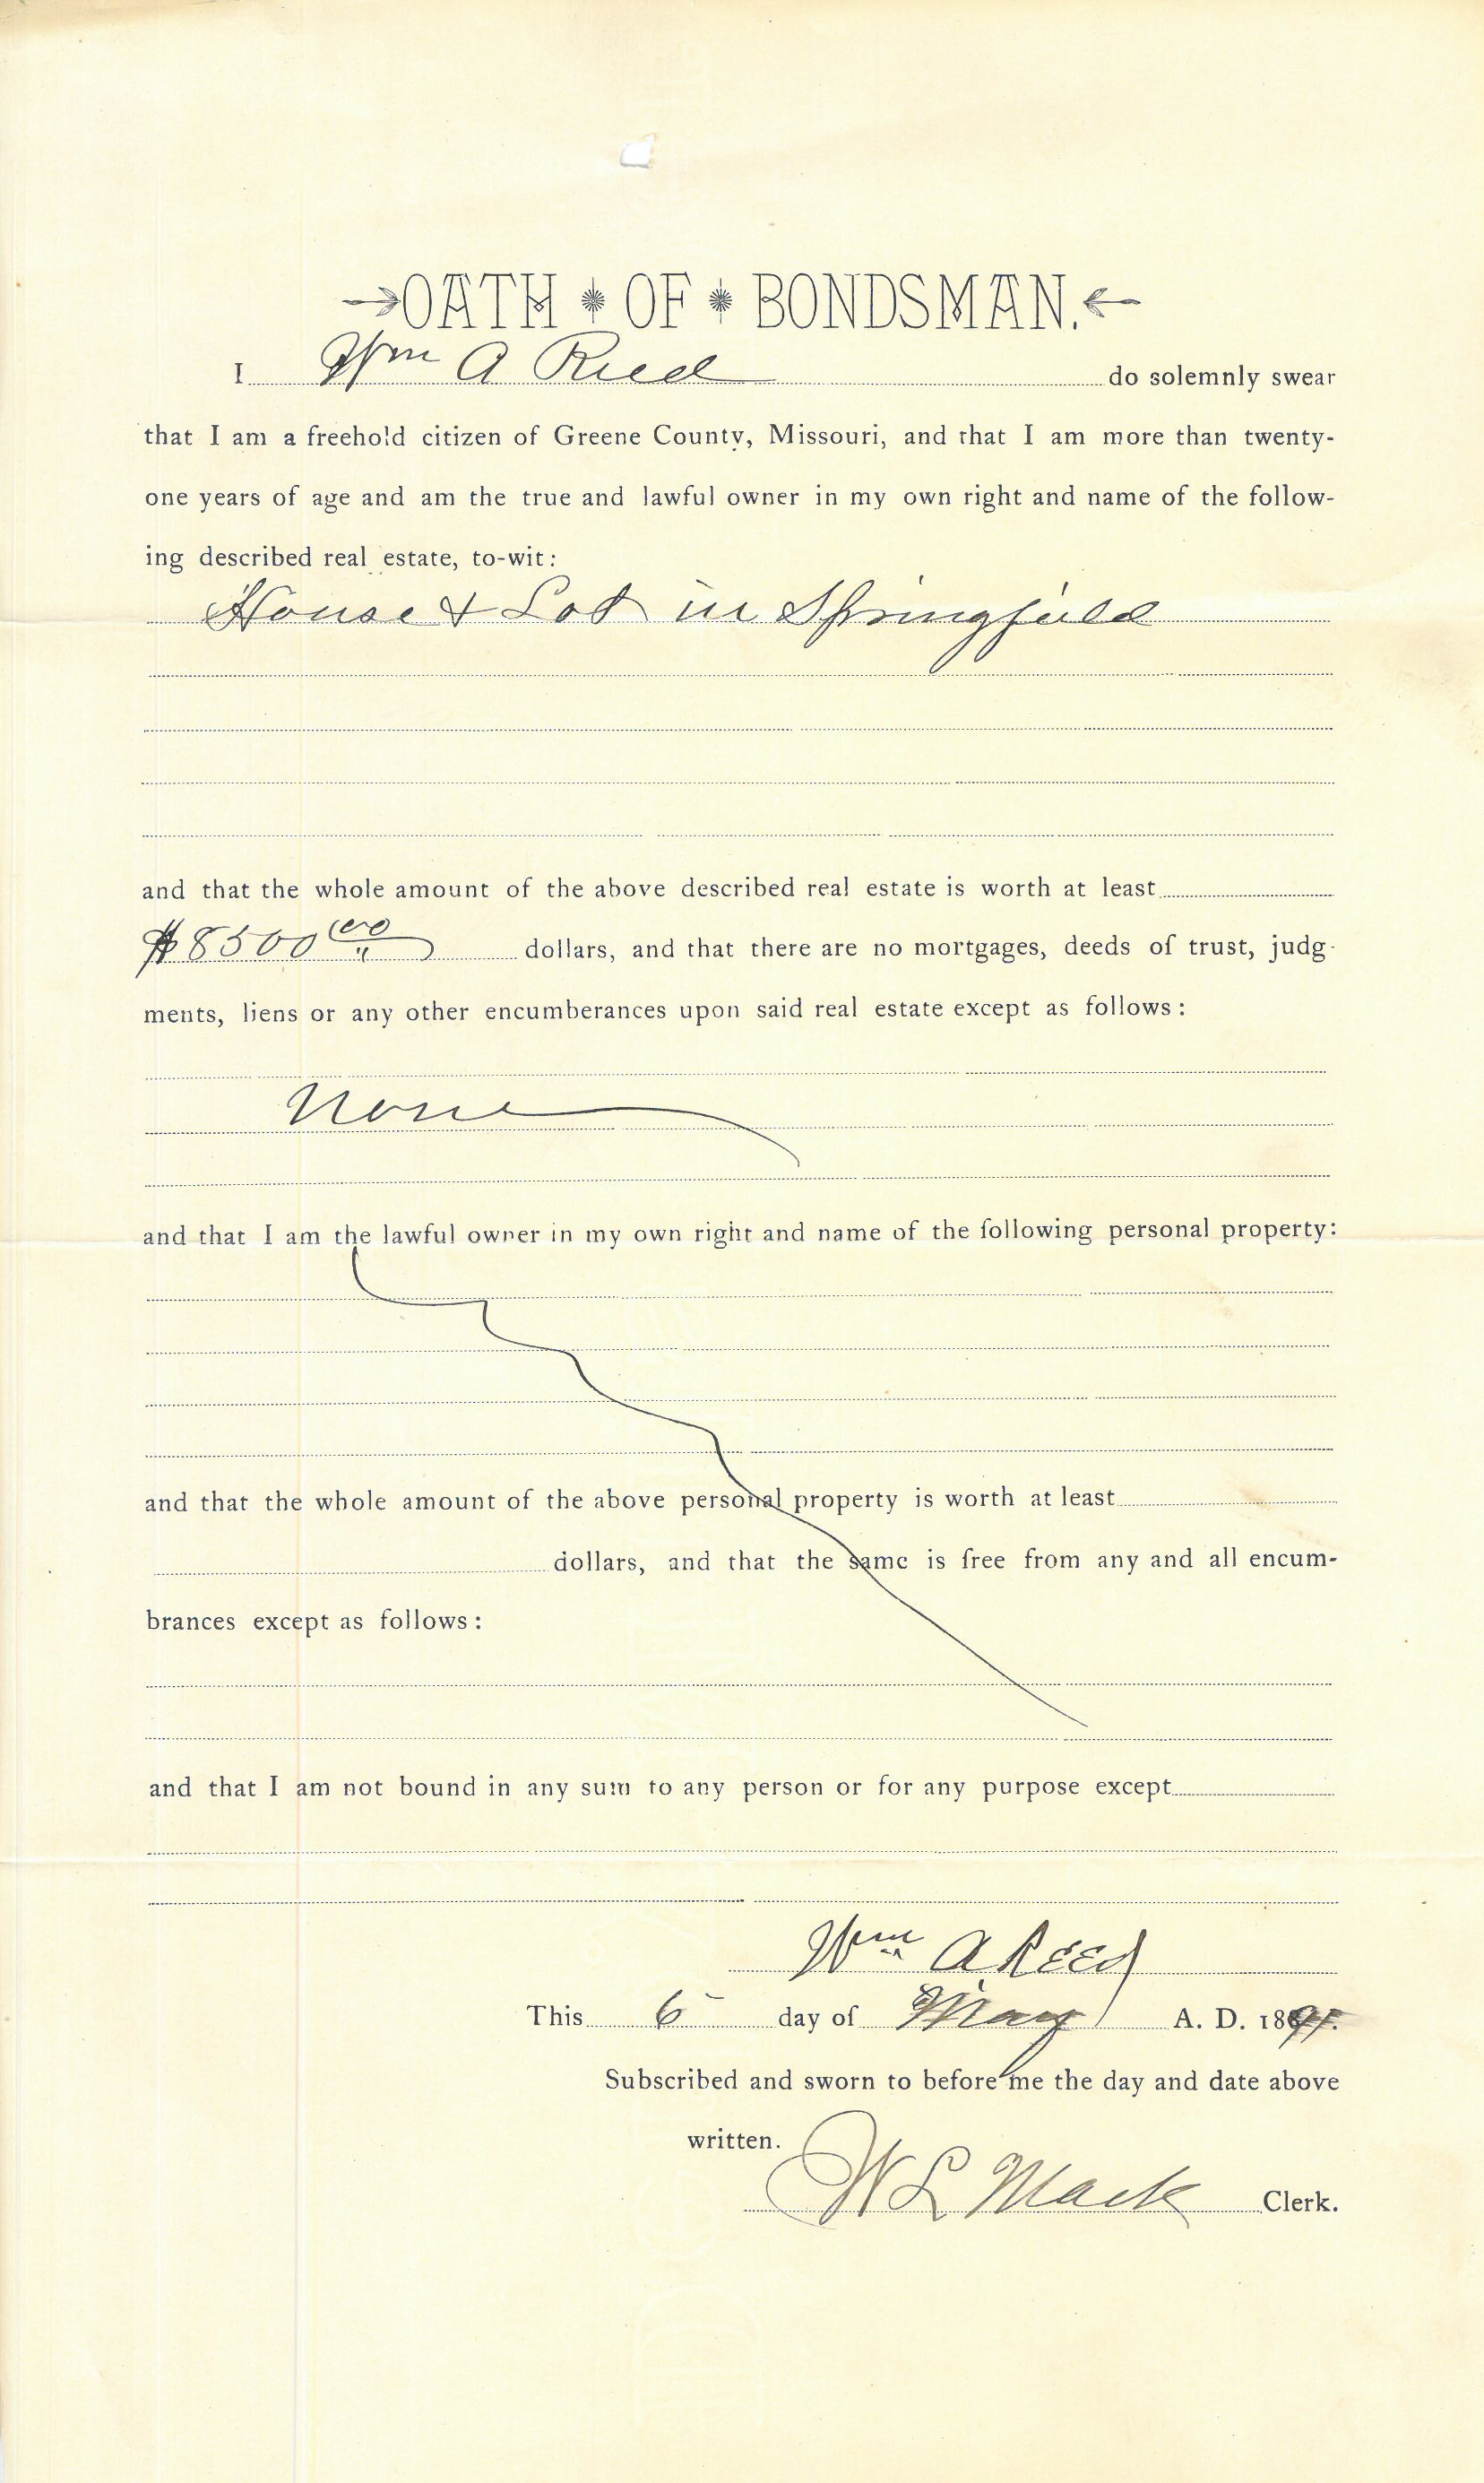 OATH OF BONDSMAN.
I Wm A Reed do solemnly swear
that I am a freehold citizen of Greene County, Missouri, and that I am more than twenty-
one years of age and am the true and lawful owner in my own right and name of the follow-
ing described real estate, to-wit:
House & Lot in Springfield
and that the whole amount of the above described real estate is worth at least
$8500 00 dollars, and that there are no mortgages, deeds of trust, judg-
ments, liens or any other encumberances upon said real estate except as follows:
None
and that I am the lawful owner in my own right and name of the following personal property:
and that the whole amount of the above personal property is worth at least
dollars, and that the same is free from any and all encum-
brances except as follows:
and that I am not bound in any sum to any person or for any purpose except
Wm A Reed
This 6 day of May A. D. 1891.
Subscribed and sworn to before me the day and date above
written.
W L Mack Clerk.